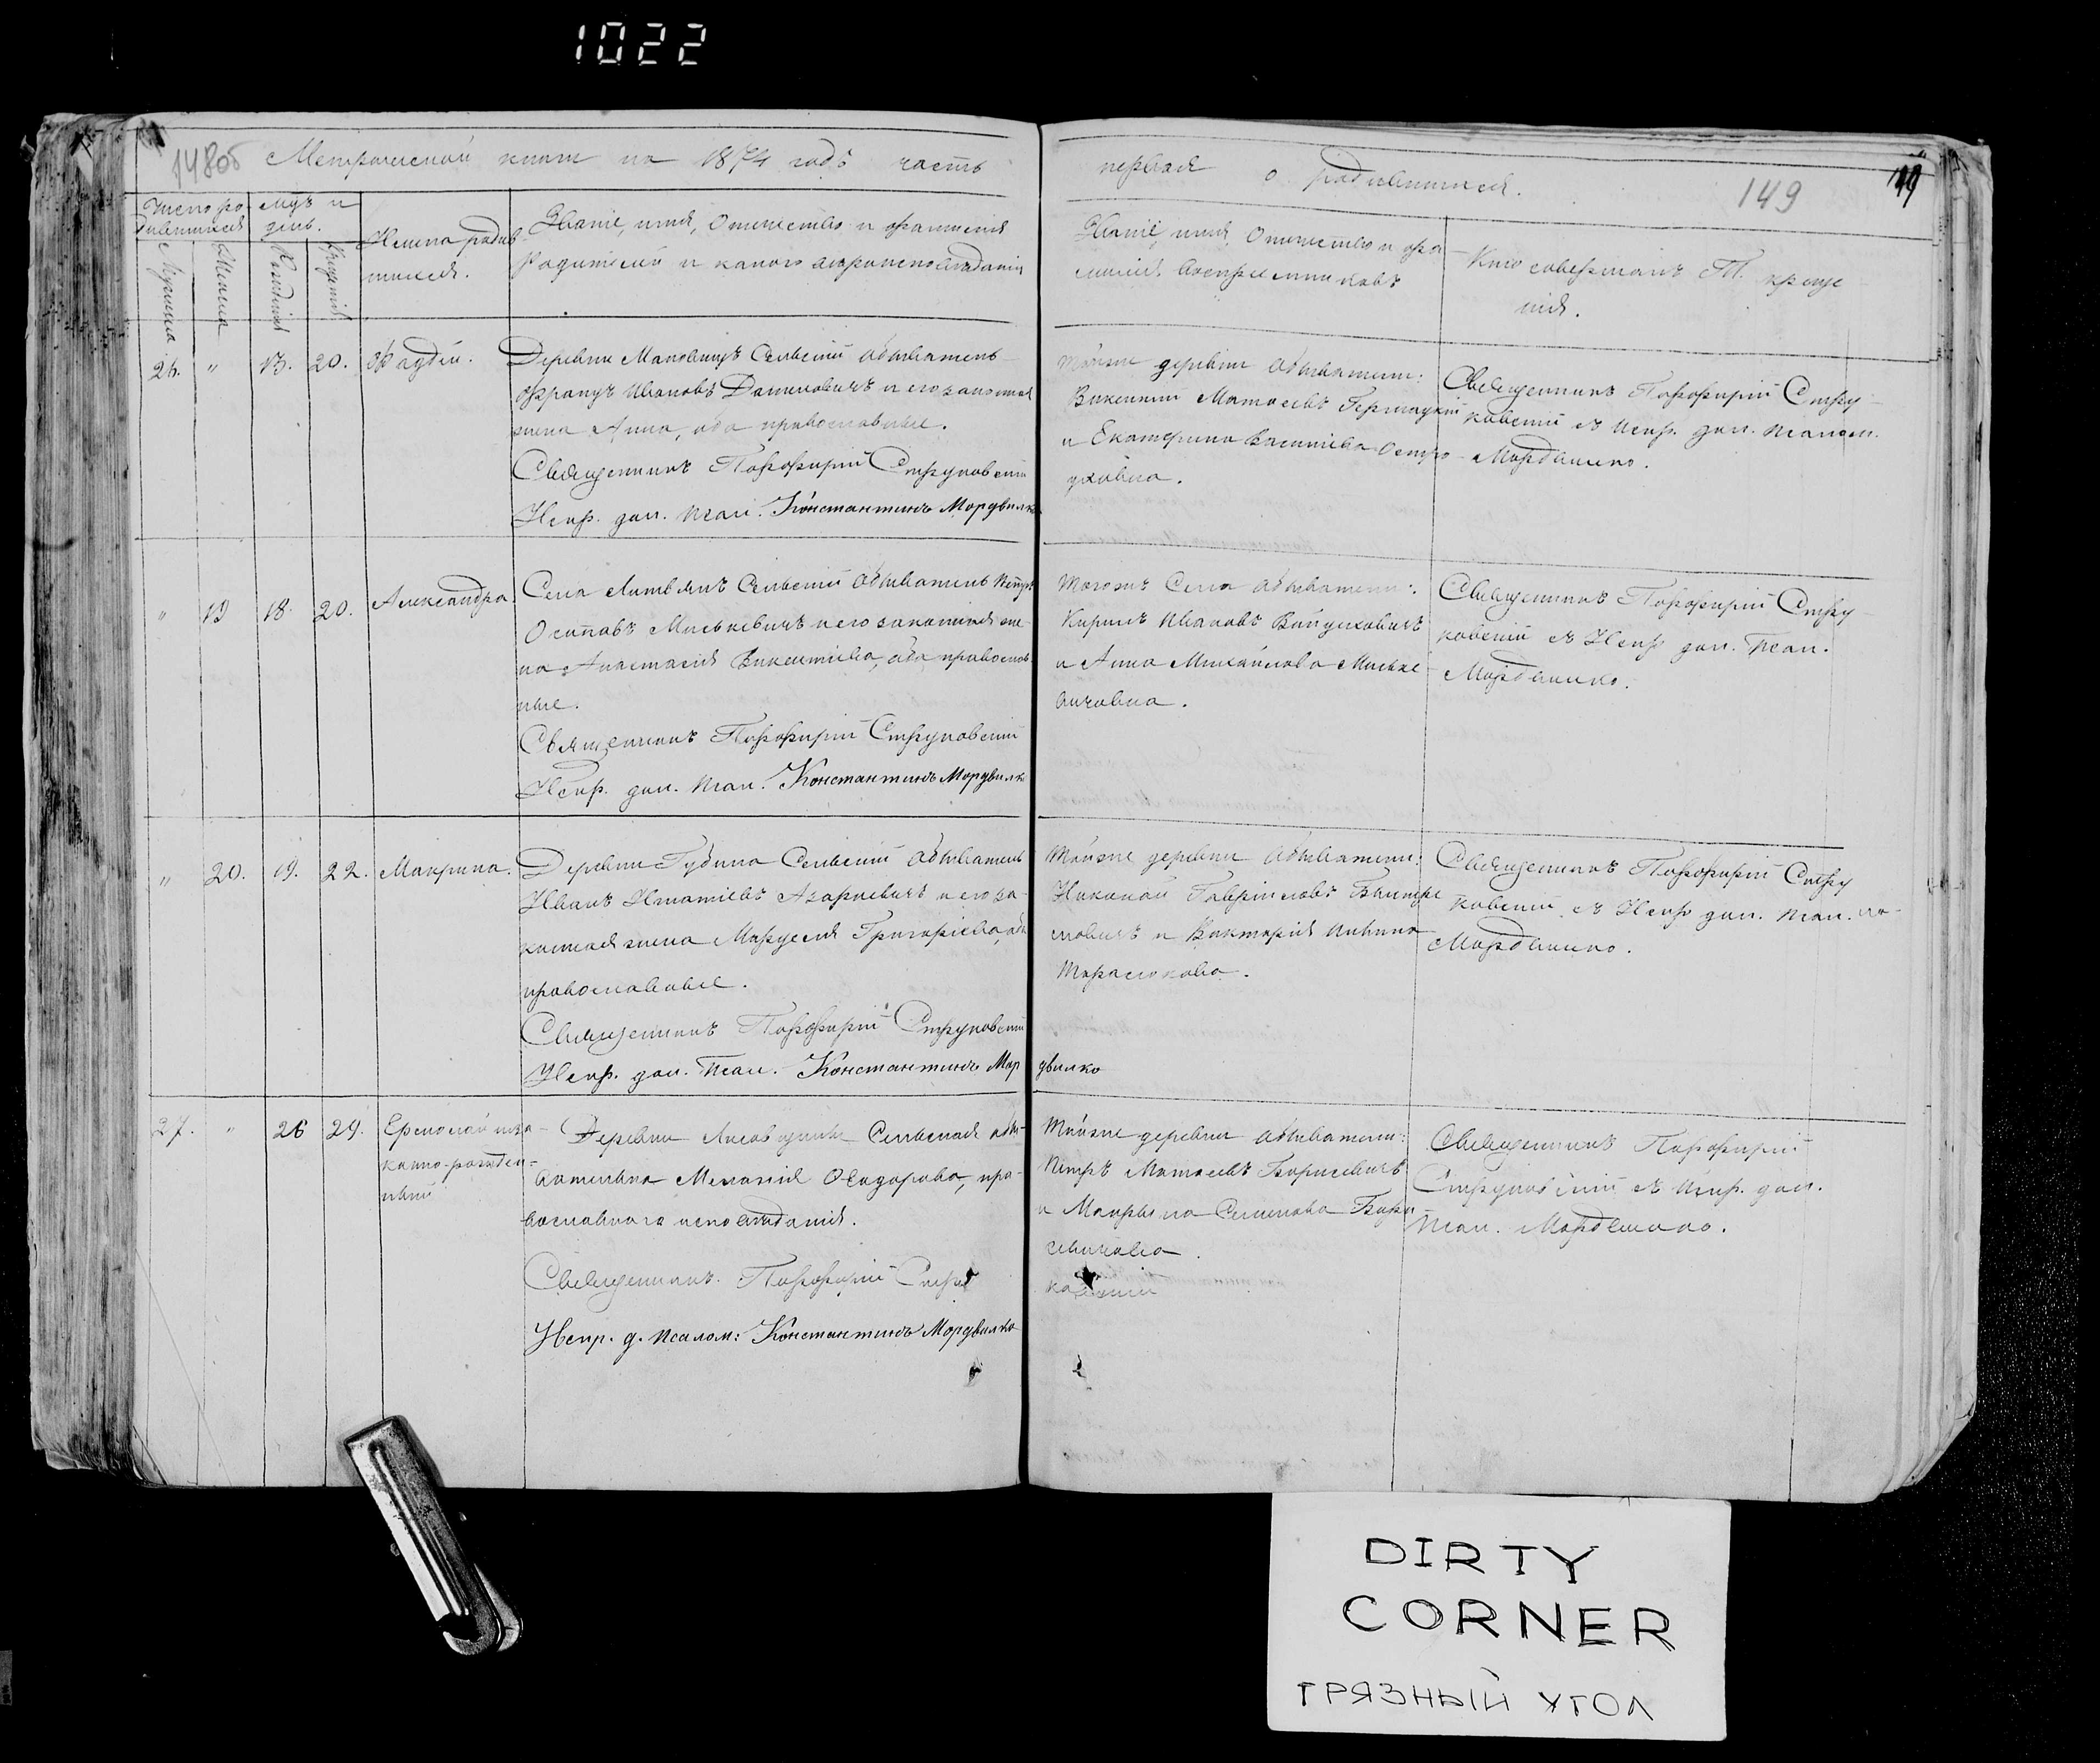 1022
148об Метрической книги на 1874 годъ часть
первая о родившихся.
149
Число ро-
дившихся
Мужска
Женска
Мѣс. и
день.
Рожденія
Крещенія
Имена родив-
шихся.
Званіе, имя, Отчество и фамилія
Родителей и какого вѣроисповѣданія
Званіе, имя, Отчество и фа-
милія Воспріемниковъ
Кто совершалъ Т. креще-
нія.
26. " 13. 20. Фадѣй.
Деревни Сельскій обыватель
Францъ Ивановъ Даниловичъ и его законная
жена Анна, оба православные.
Священникъ Порфирій Струковскій
Испр. дол. псал. Константинъ Мордвилко
Тойже деревни обыватели:
Викентій Матѳеевъ
и Екатерина Васильева
Священникъ Порфирій Стру-
ковскій съ Испр. дол. псалом.
Мордвилко.
" 19 18. 20. Александра.
Села Сельскій обыватель Петръ
Осиповъ Миськевичъ и его законная же-
на Анастасія Викентіева, оба православ-
ные.
Священникъ Порфирій Струковскій
Испр. дол. псал. Константинъ Мордвилко
Тогожъ Села обыватели:
Кирилъ Ивановъ Войцеховичъ
и Анна Михайлова Миське-
вичовна.
Священникъ Порфирій Стру-
ковскій съ Испр. дол. псал.
Мордвилко.
" 20. 19. 22. Макрина.
Деревни Губина Сельскій обыватель
Иванъ Игнатіевъ Азаркевичъ и его за-
конная жена Маруселя Григоріева, оба
православные.
Священникъ Порфирій Струковскій
Испр. дол. псал. Константинъ Мор
двилко
Тойже деревни обыватели:
Николай Гавріиловъ
и Викторія
Тарасюкова.
Священникъ Порфирій Стру
ковскій съ Испр. дол. псал.
Мордвилко.
27. " 26 29. Ермолай неза-
конно-рожден-
ный
Деревни Сельская обы-
вательна Меланія Ѳеодорова, пра-
вославнаго исповѣданія.
Священникъ Порфирій Стру
ковскій
Испр. д. псалом: Константинъ Мордвилко
Тойже деревни обыватели:
Петръ Матѳеевъ Борисевичъ
и Макрына Семенова Бори
севичова.
Священникъ Порфирій
Струковскій съ Испр. дол.
псал. Мордвилко.
DIRTY
CORNER
ГРЯЗНЫЙ УГОЛ